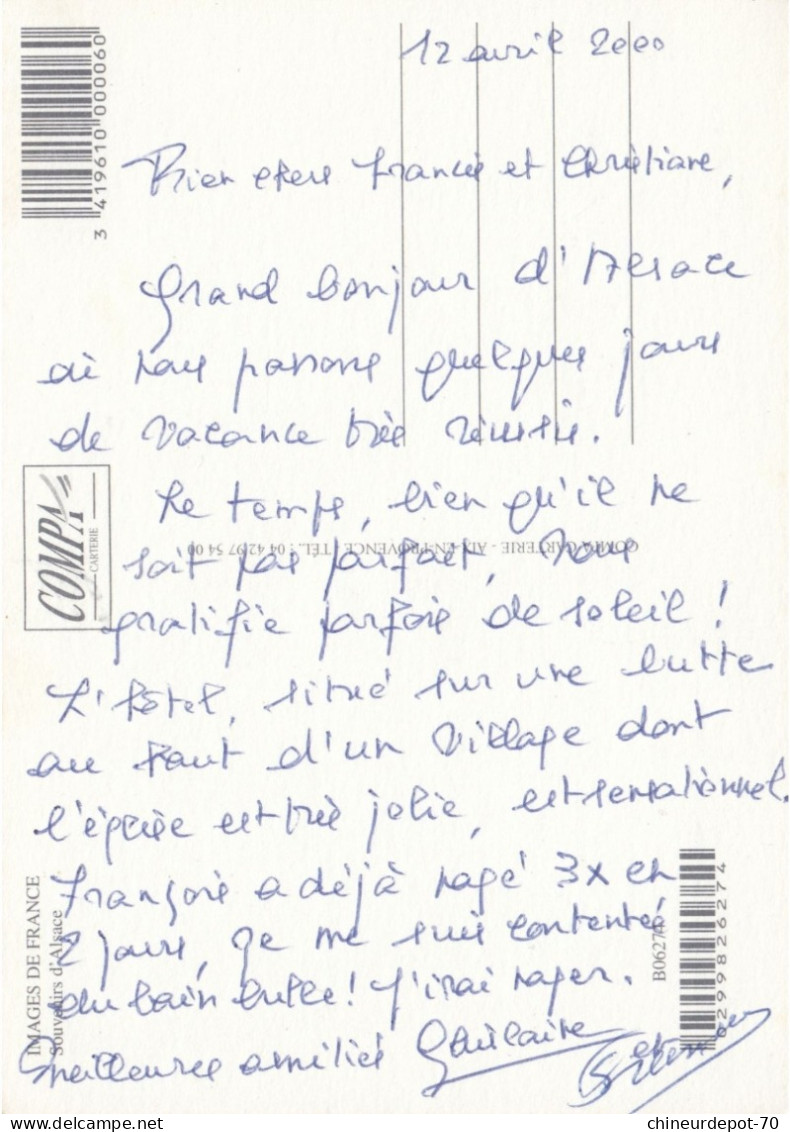 12 avril 2000
Bien chers Francis et Christiane,
Grand bonjour d'Alsace
où nous passons quelques jours
de vacance très réussis.
Le temps, bien qu'il ne
soit pas parfait, nous
gratifie parfois de soleil !
L'hôtel, situé sur une butte
au haut d'un village dont
l'église est très jolie, est sensationnel.
François a déjà nagé 3x en
2 jours, je me suis contentée
du bain bulle ! J'irai nager.
Meilleures amitiés Ghislaine
et
3 419610 000060
COMPA
CARTERIE
COMPA CARTERIE - AIX-EN-PROVENCE - TÉL. : 04 42 97 54 00
IMAGES DE FRANCE
Souvenirs d'Alsace
B06274
829982 6274
chineurdepot-70